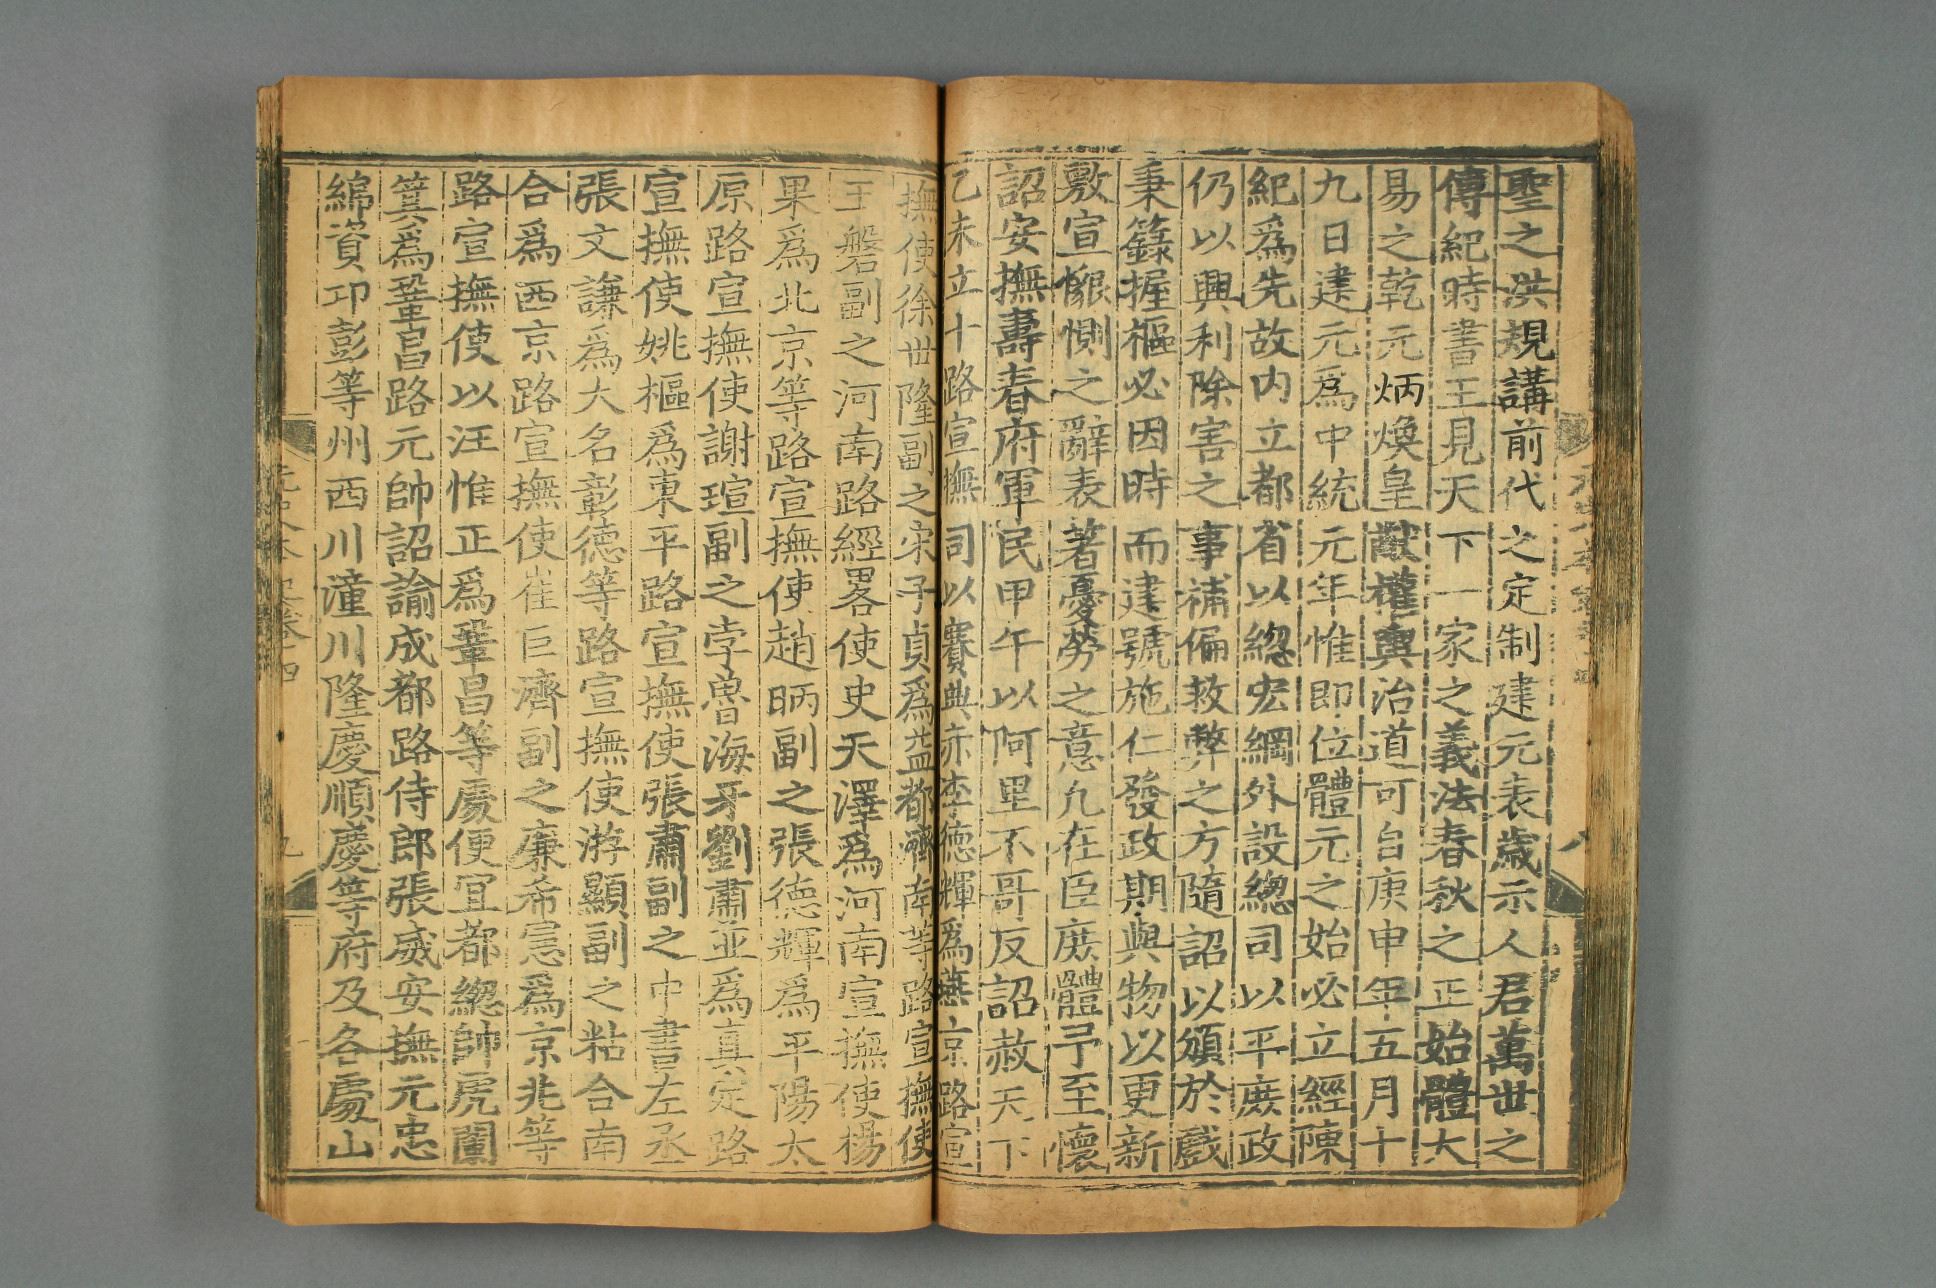 聖之洪規講前代之定制建元表歲示人君萬世之
傳紀時書王見天下一家之義法春秋之正始體大
易之乾元炳煥皇猷權輿治道可自庚申年五月十
九日建元爲中統元年惟即位體元之始必立經陳
紀爲先故內立都省以緫宏綱外設緫司以平庶政
仍以興利除害之事補偏救弊之方隨詔以頒於戲
秉籙握樞必因時而建號施仁發政期與物以更新
敷宣懇惻之辭表著憂勞之意凢在臣庶體予至懷
詔安撫壽春府軍民甲午以阿里不哥反詔赦天下
乙未立十路宣撫司以賽典赤李德輝爲燕京路宣
撫使徐世隆副之宋子貞爲益都濟南等路宣撫使
王磐副之河南路經畧使史天澤爲河南宣撫使楊
果爲北京等路宣撫使趙昞副之張德輝爲平陽太
原路宣撫使謝瑄副之孛魯海牙劉肅並爲真定路
宣撫使姚樞爲東平路宣撫使張肅副之中書左丞
張文謙爲大名彰德等路宣撫使游顯副之粘合南
合爲西京路宣撫使崔巨濟副之廉希憲爲京兆等
路宣撫使以汪惟正爲鞏昌等處便宜都緫帥虎闌
箕爲鞏昌路元帥詔諭成都路侍郎張威安撫元忠
綿資邛彭等州西川潼川隆慶順慶等府及各處山
元史本紀卷四
九
八